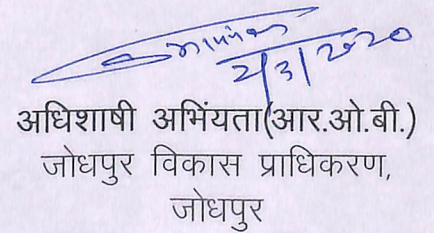 2/3/2020
अधिशाषी अभिंयता(आर.ओ.बी.)
जोधपुर विकास प्राधिकरण,
जोधपुर